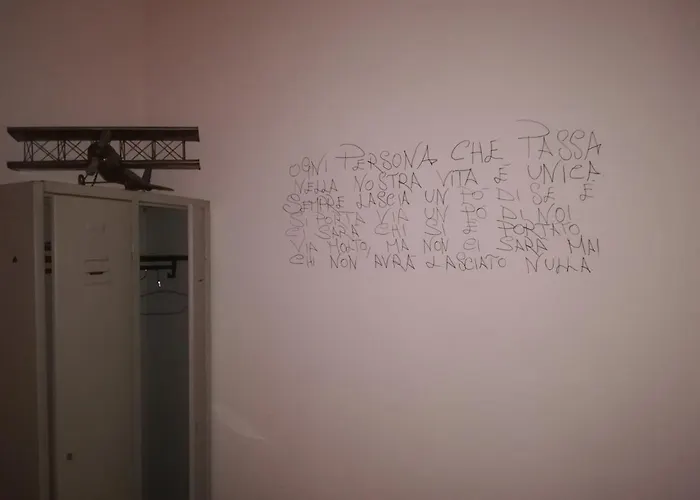 OGNI PERSONA CHE PASSA
NELLA NOSTRA VITA È UNICA
SEMPRE LASCIA UN PÒ DI SE E
SI PORTA VIA UN PÒ DI NOI
CI SARÀ CHI SI È PORTATO
VIA MOLTO, MA NON CI SARÀ MAI
CHI NON AVRÀ LASCIATO NULLA